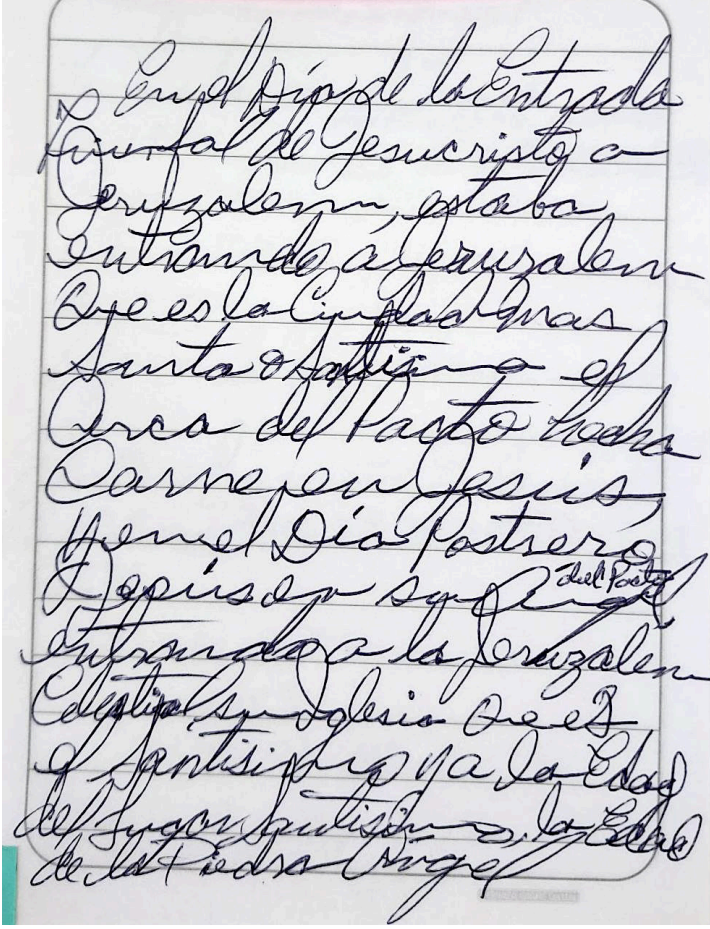 En el Día de la Entrada
Triunfal de Jesucristo a
Jeruzalem, estaba
entrando a Jeruzalem
Que es la Ciudad mas
Santa o Santisima el
Arca del Pacto hecha
Carne en Jesús,
y en el Día Postrero
Jesús en su Angel del Pacto
entrando a la Jeruzalem
Celestial su Iglesia Que es
el Santisimo y a la Edad
del Lugar Santisimo, la Edad
de la Piedra Angel